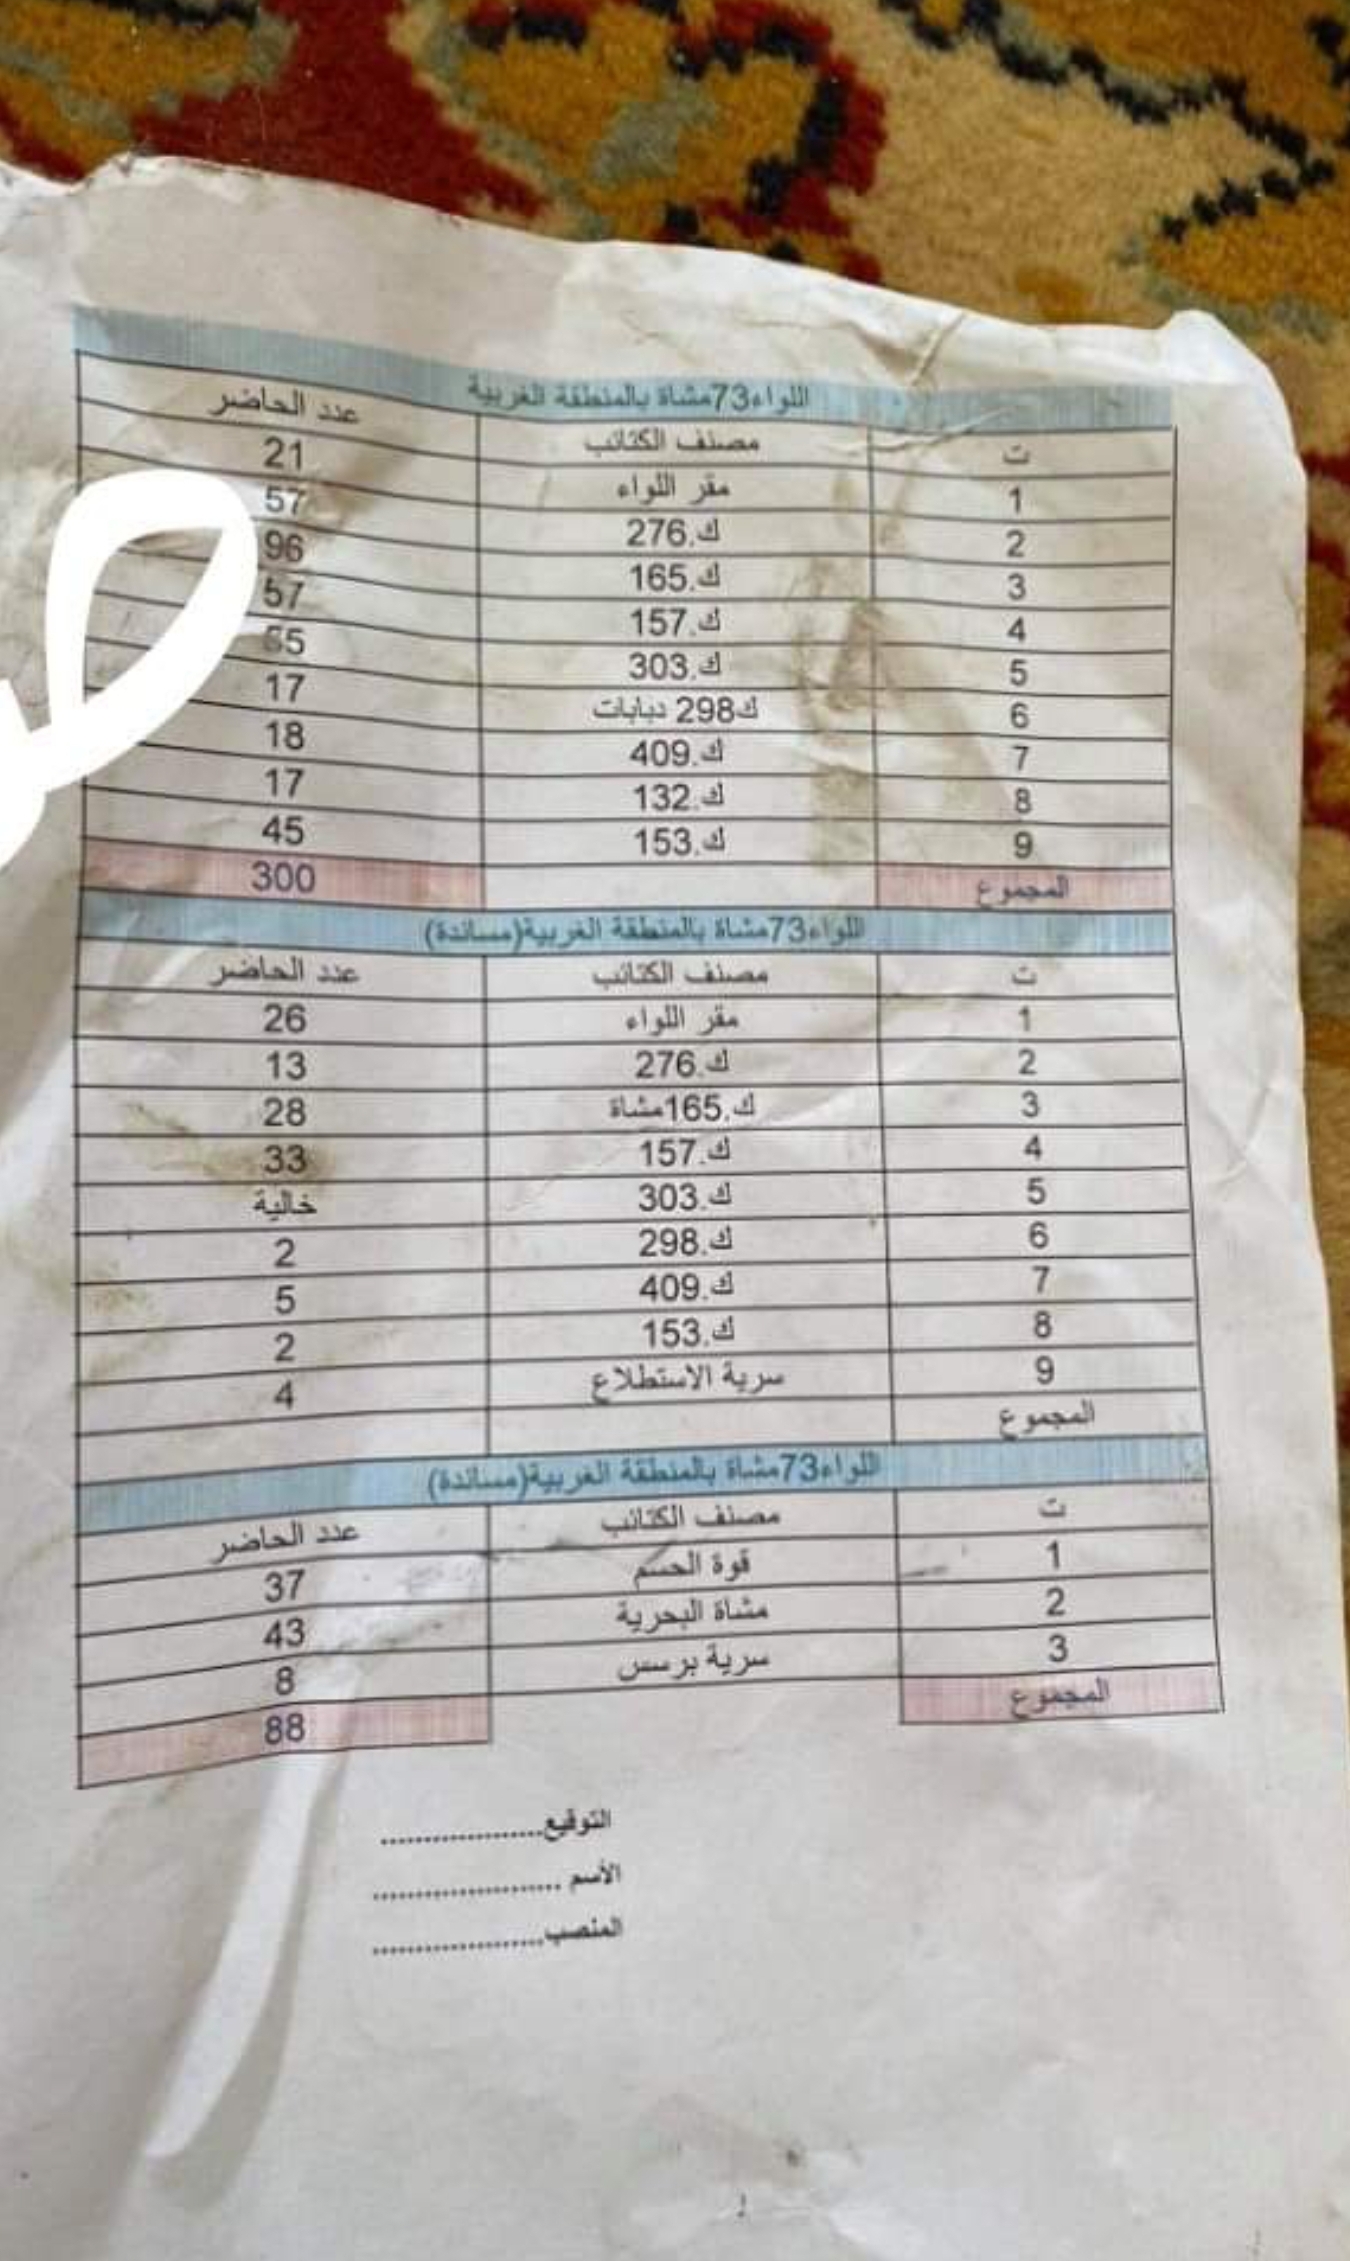 اللواء73مشاة بالمنطقة الغربية
ت مصنف الكتائب عدد الحاضر
1 مقر اللواء 21
2 ك.276 57
3 ك.165 96
4 ك.157 57
5 ك.303 55
6 ك298 دبابات 17
7 ك.409 18
8 ك.132 17
9 ك.153 45
المجموع 300
اللواء73مشاة بالمنطقة الغربية(مساندة)
ت مصنف الكتائب عدد الحاضر
1 مقر اللواء 26
2 ك.276 13
3 ك.165مشاة 28
4 ك.157 33
5 ك.303 خالية
6 ك.298 2
7 ك.409 5
8 ك.153 2
9 سرية الاستطلاع 4
المجموع
اللواء73مشاة بالمنطقة الغربية(مساندة)
ت مصنف الكتائب عدد الحاضر
1 قوة الحسم 37
2 مشاة البحرية 43
3 سرية برسس 8
المجموع 88
التوقيع....................
الأسم .......................
المنصب.....................